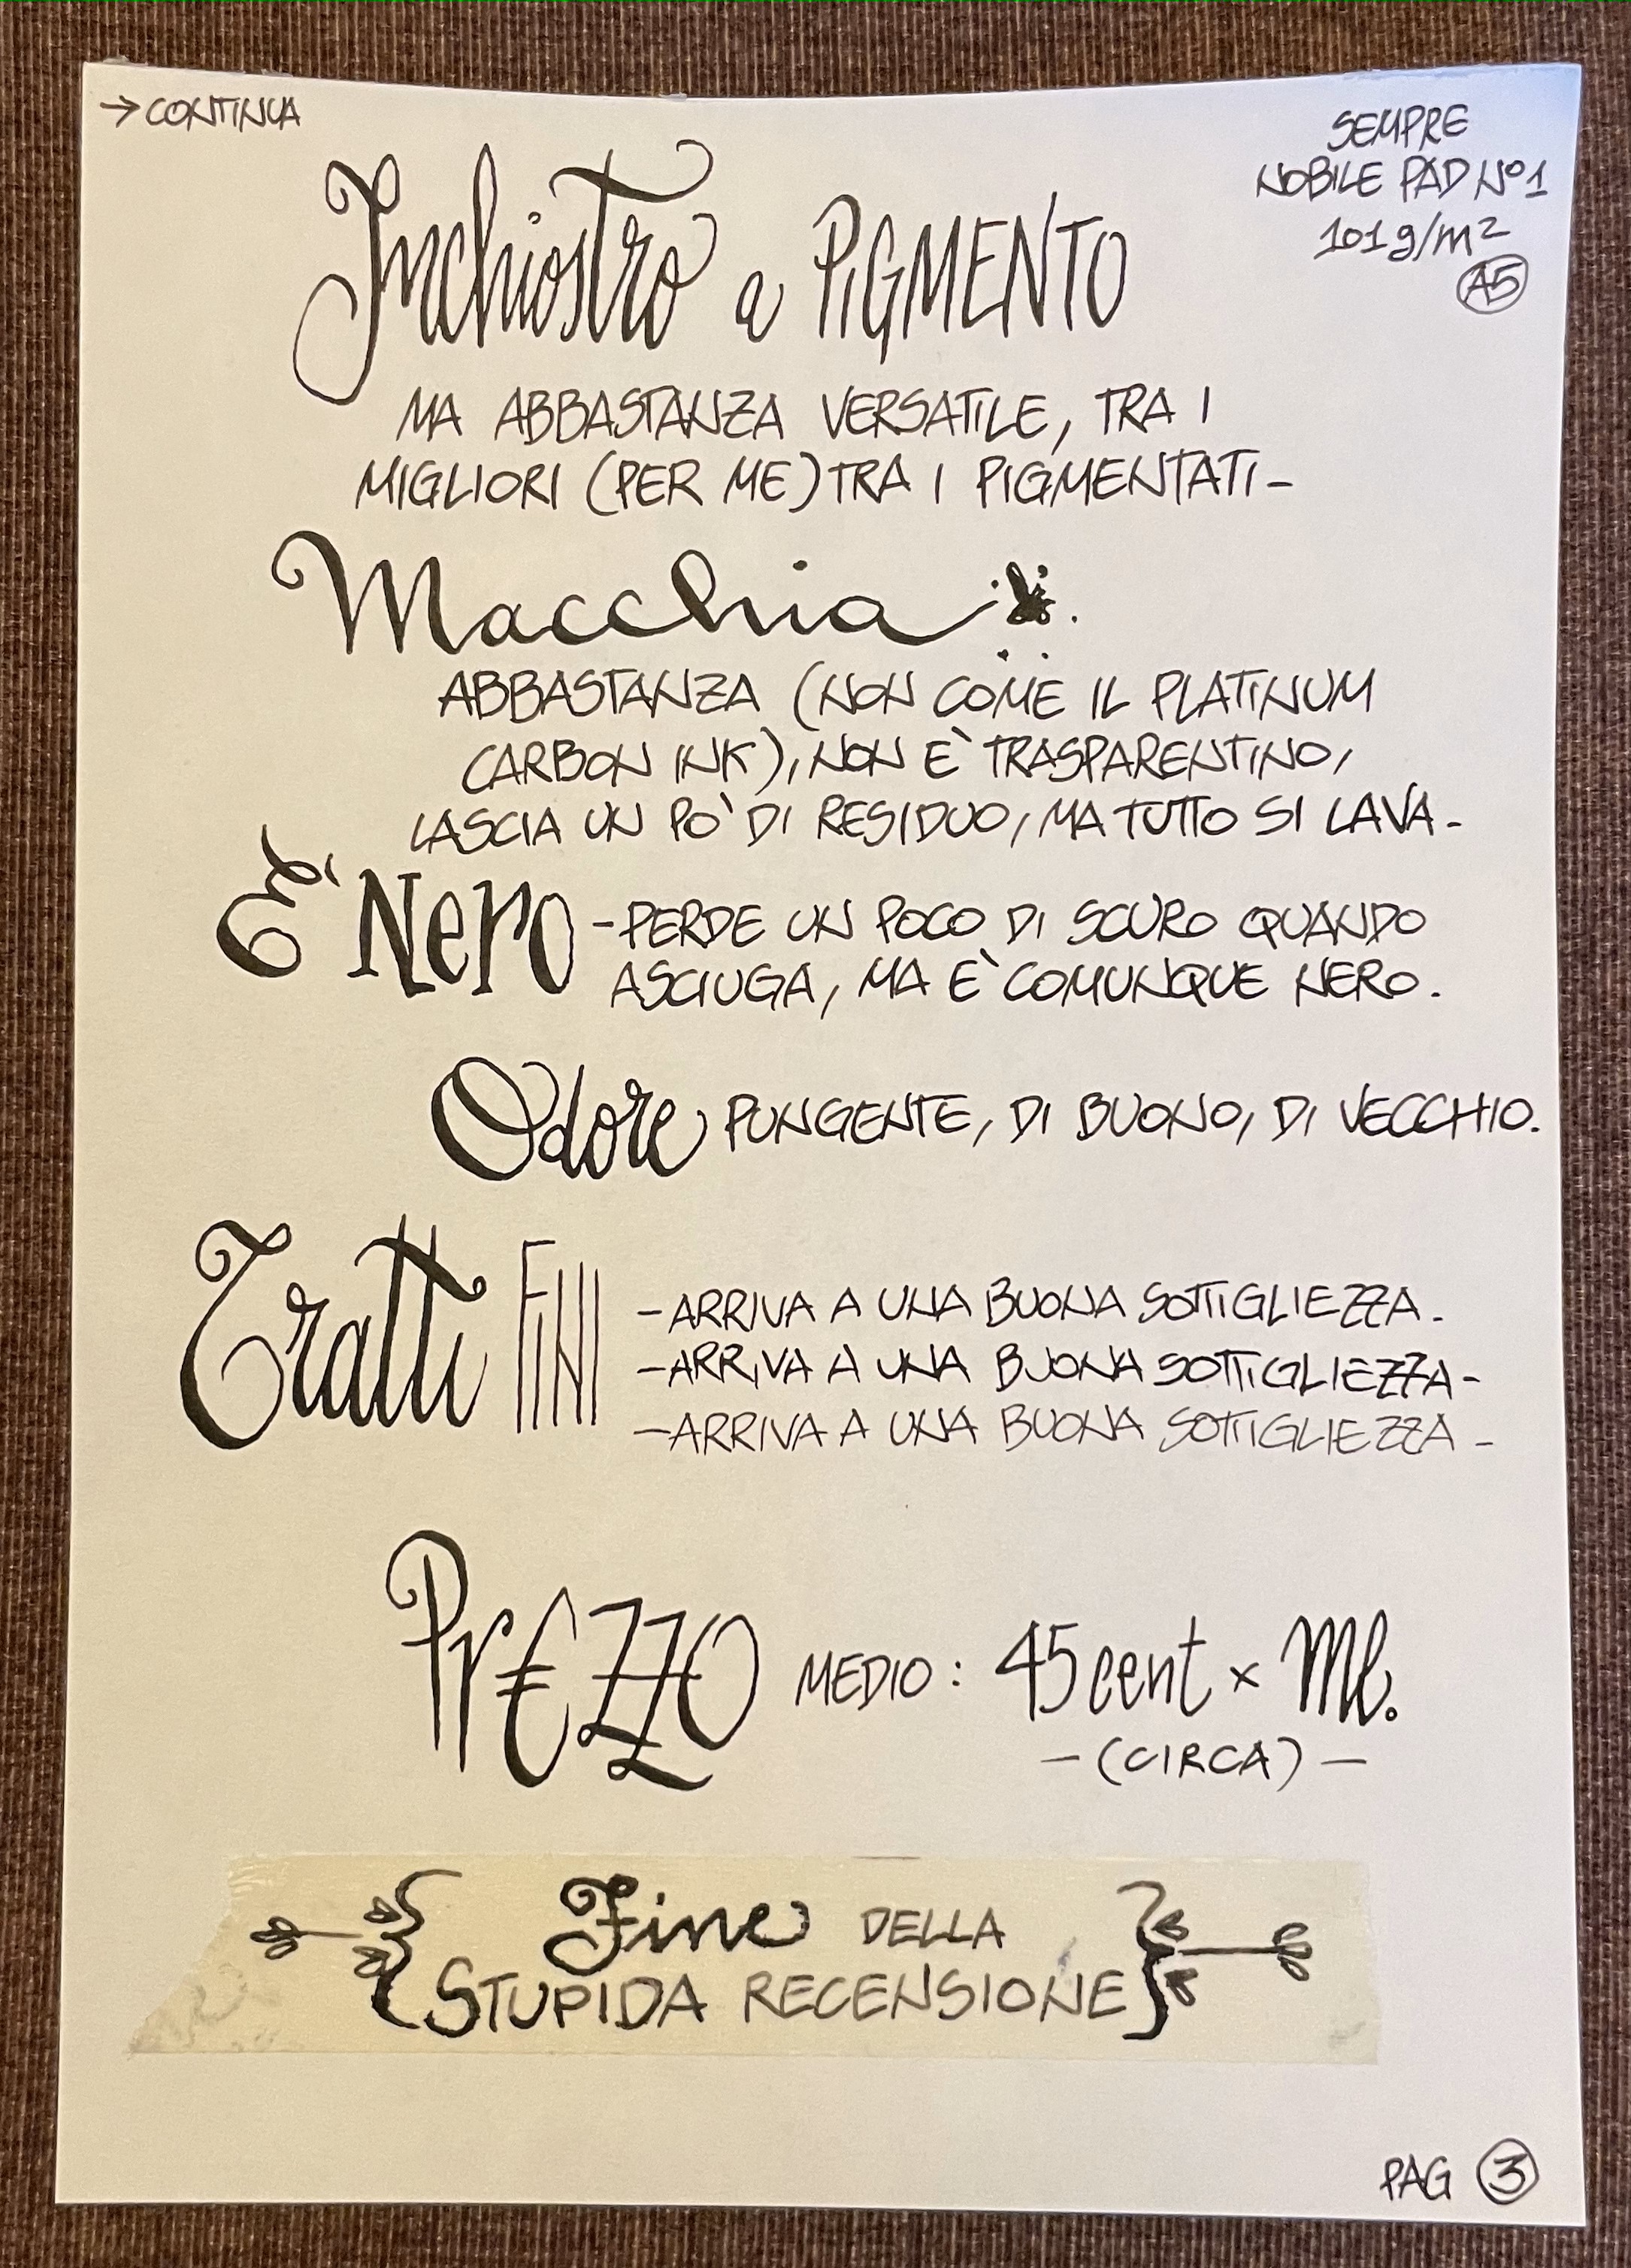 → CONTINUA
SEMPRE
NOBILE PAD Nº1
101g/m²
A5
Inchiostro a PIGMENTO
MA ABBASTANZA VERSATILE, TRA I
MIGLIORI (PER ME) TRA I PIGMENTATI-
Macchia
ABBASTANZA (NON COME IL PLATINUM
CARBON INK), NON È TRASPARENTINO,
LASCIA UN PO' DI RESIDUO, MA TUTTO SI LAVA-
E' Nero -PERDE UN POCO DI SCURO QUANDO
ASCIUGA, MA È COMUNQUE NERO.
Odore PUNGENTE, DI BUONO, DI VECCHIO.
Tratti FINI -ARRIVA A UNA BUONA SOTTIGLIEZZA-
-ARRIVA A UNA BUONA SOTTIGLIEZZA-
-ARRIVA A UNA BUONA SOTTIGLIEZZA-
Pr€ZZO MEDIO: 45cent x Ml.
-(CIRCA)-
{Fine DELLA
STUPIDA RECENSIONE}
PAG 3